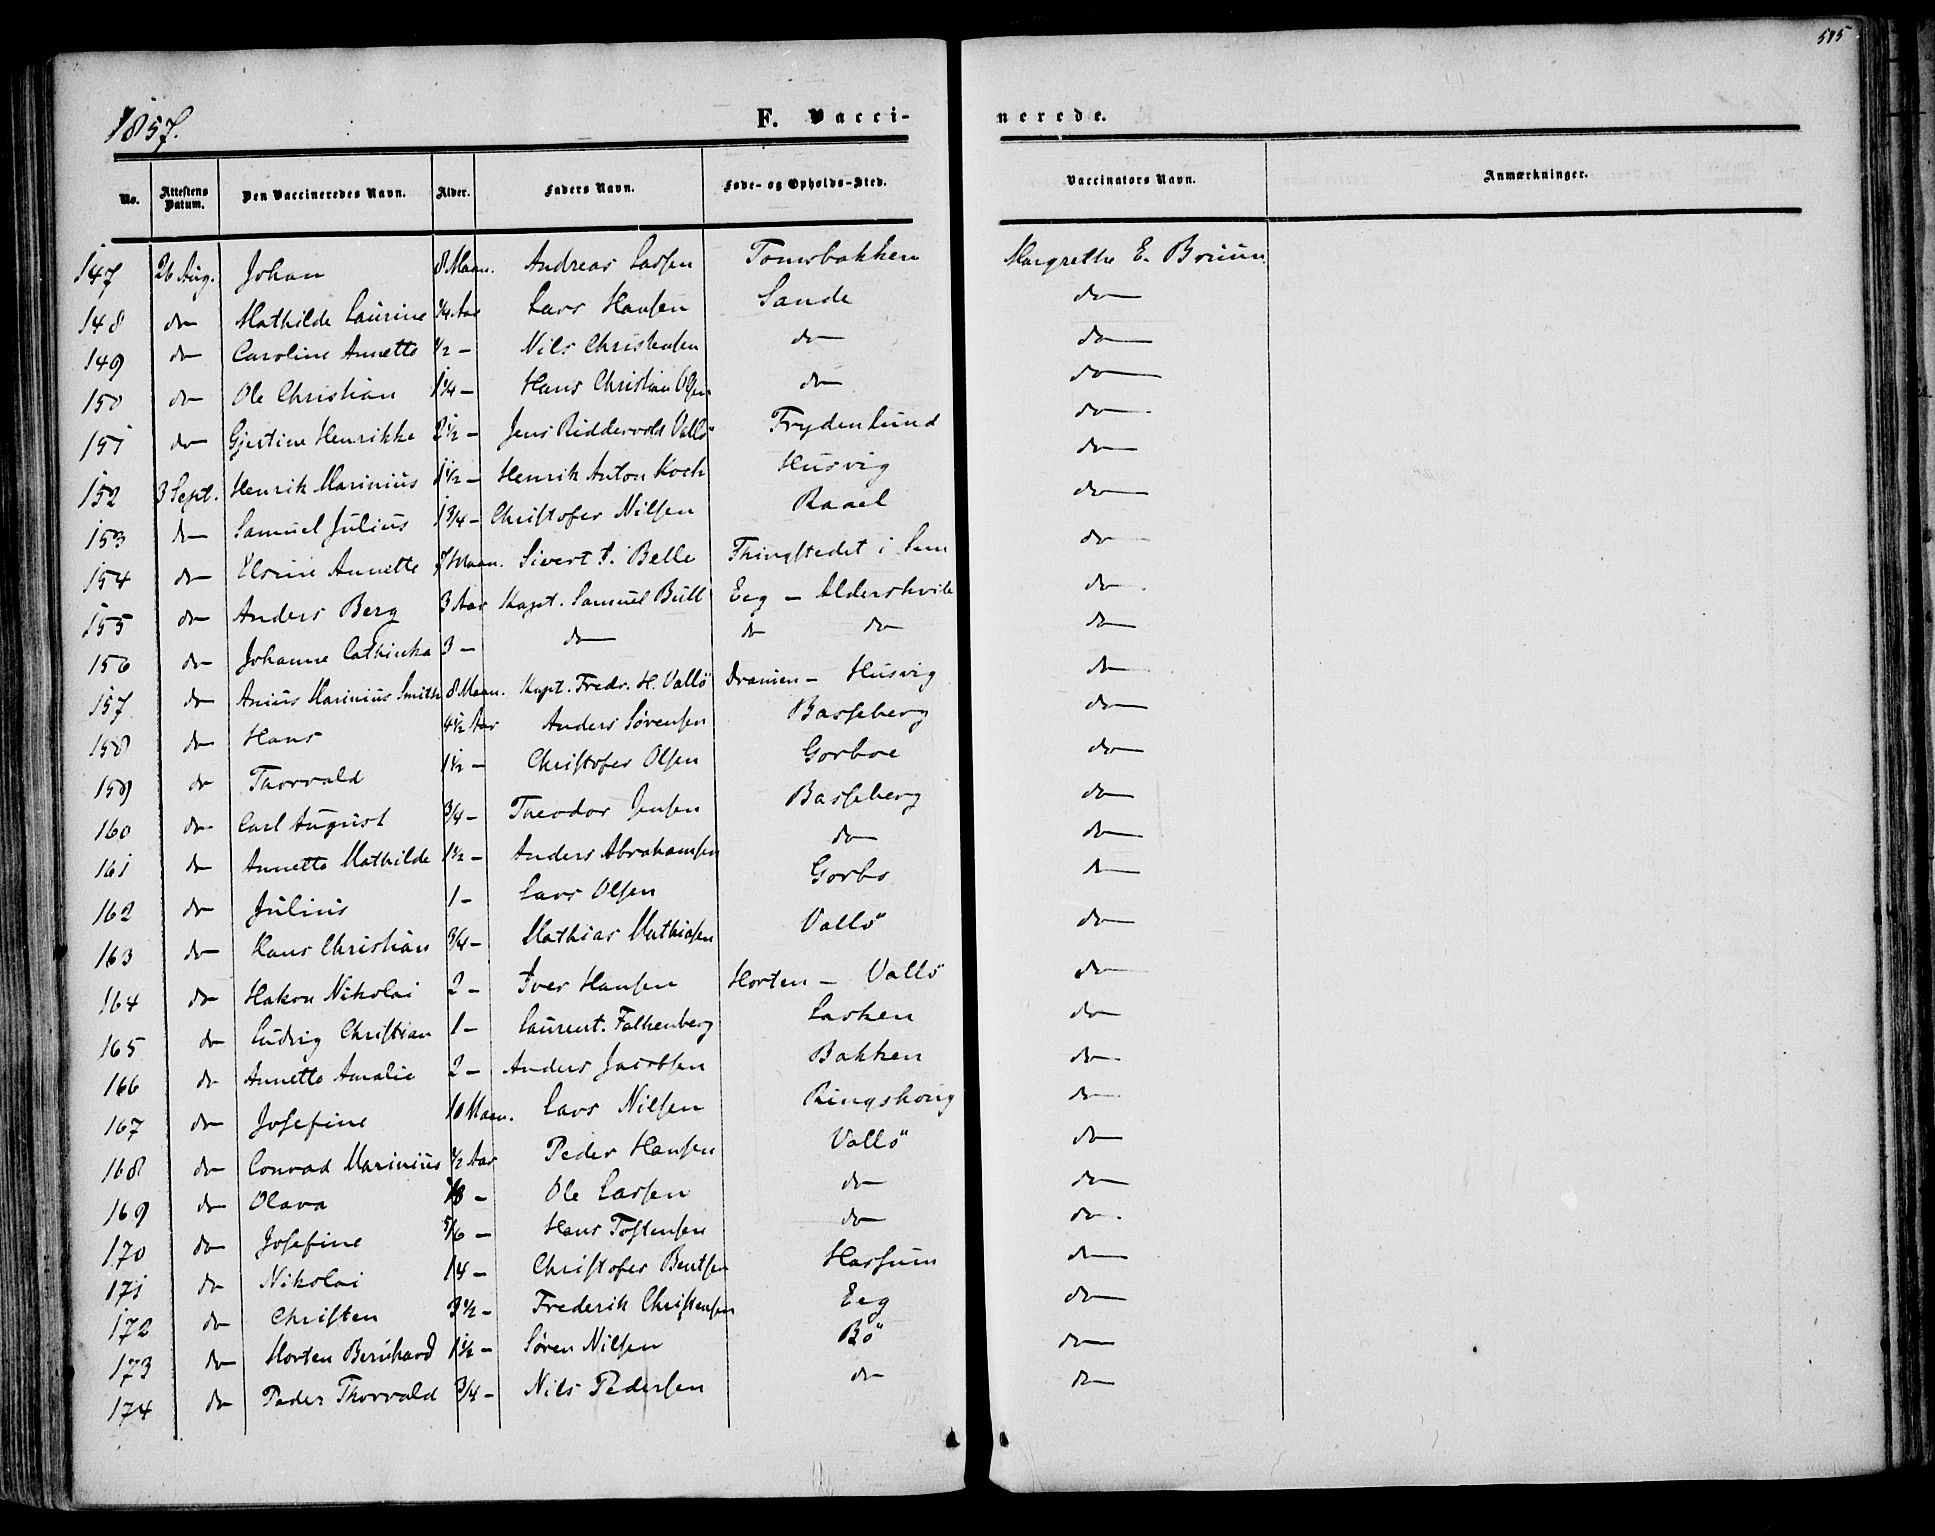 515
1857.
F. Vaccinerede.
No. | Attestens Datum. | Den Vaccineredes Navn. | Alder. | Faders Navn. | Føde- og Opholds-Sted. | Vaccinators Navn. | Anmærkninger.
147 | 26 Aug. | Johan | 8 Maan. | Andreas Larsen | Tomsbakken | Margrethe E. Bruun
148 | do | Mathilde Laurine | 3/4 Aar | Lars Hansen | Sande | do
149 | do | Caroline Annette | 1/2 - | Nils Christensen | do | do
150 | do | Ole Christian | 1 1/4 - | Hans Christian Olsen | do | do
151 | do | Gjertine Henrikke | 2 1/2 - | Jens Riddervold Vallö | Frydenlund | do
152 | 3 Sept. | Henrik Marinius | 1 1/2 - | Henrik Anton Koch | Husvig | do
153 | do | Samuel Julius | 1 3/4 - | Christofer Nilsen | Raael | do
154 | do | Elvine Annette | 7 Maan. | Sivert S. Belle | Thingstedet i Sem | do
155 | do | Anders Berg | 3 Aar | Kapt. Samuel Bull | Eeg - Aldershvile | do
156 | do | Johanne Cathinka | 3 - | do | do do | do
157 | do | Anius Marinius Smith | 8 Maan. | Kapt. Fredr. H. Vallö | Dramen - Husvig | do
158 | do | Hans | 4 1/2 Aar | Anders Sørensen | Basseberg | do
159 | do | Thorvald | 1 1/2 - | Christofer Olsen | Gorboe | do
160 | do | Carl August | 3/4 - | Theodor Jensen | Basseberg | do
161 | do | Annette Mathilde | 1 1/2 - | Anders Abrahamsen | do | do
162 | do | Julius | 1 - | Lars Olsen | Gorbo | do
163 | do | Hans Christian | 3/4 - | Mathias Mathiasen | Vallö | do
164 | do | Hakon Nikolai | 2 - | Iver Hansen | Horten - Vallö | do
165 | do | Ludvig Christian | 1 - | Laurent. Falkenberg | Lasken | do
166 | do | Annette Amalie | 2 - | Anders Jacobsen | Bakken | do
167 | do | Josefine | 10 Maan. | Lars Nilsen | Ringshoug | do
168 | do | Conrad Marinius | 1/2 Aar | Peder Hansen | Vallö | do
169 | do | Olava | 13 - | Ole Larsen | do | do
170 | do | Josefine | 5/6 - | Hans Tostensen | do | do.
171 | do | Nikolai | 14 - | Christofer Bentsen | Hassum | do
172 | do | Christen | 3 1/2 - | Frederik Christensen | Eeg | do
173 | do | Morten Bernhard | 1 1/2 - | Søren Nilsen | Bö | do
174 | do | Peder Thorvald | 3/4 - | Nils Pedersen | do | do